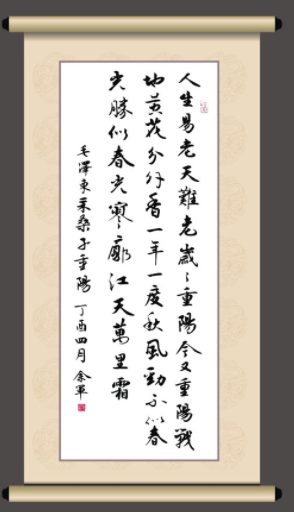 人生易老天難老歲々重陽今又重陽戰
地黄花分外香一年一度秋風勁不似春
光勝似春光寥廓江天萬里霜
毛澤東采桑子重陽 丁酉四月 余軍